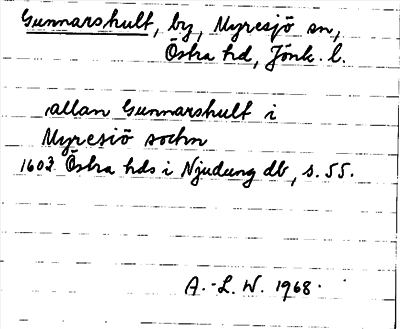 Gunnarshult, by, Myresjö sn,
Östra hd, Jönk. l.
allan Gunnarshult i
Myresiö sochn
1603 Östra hds i Njudung db, s. 55.
A.-L. W. 1968.